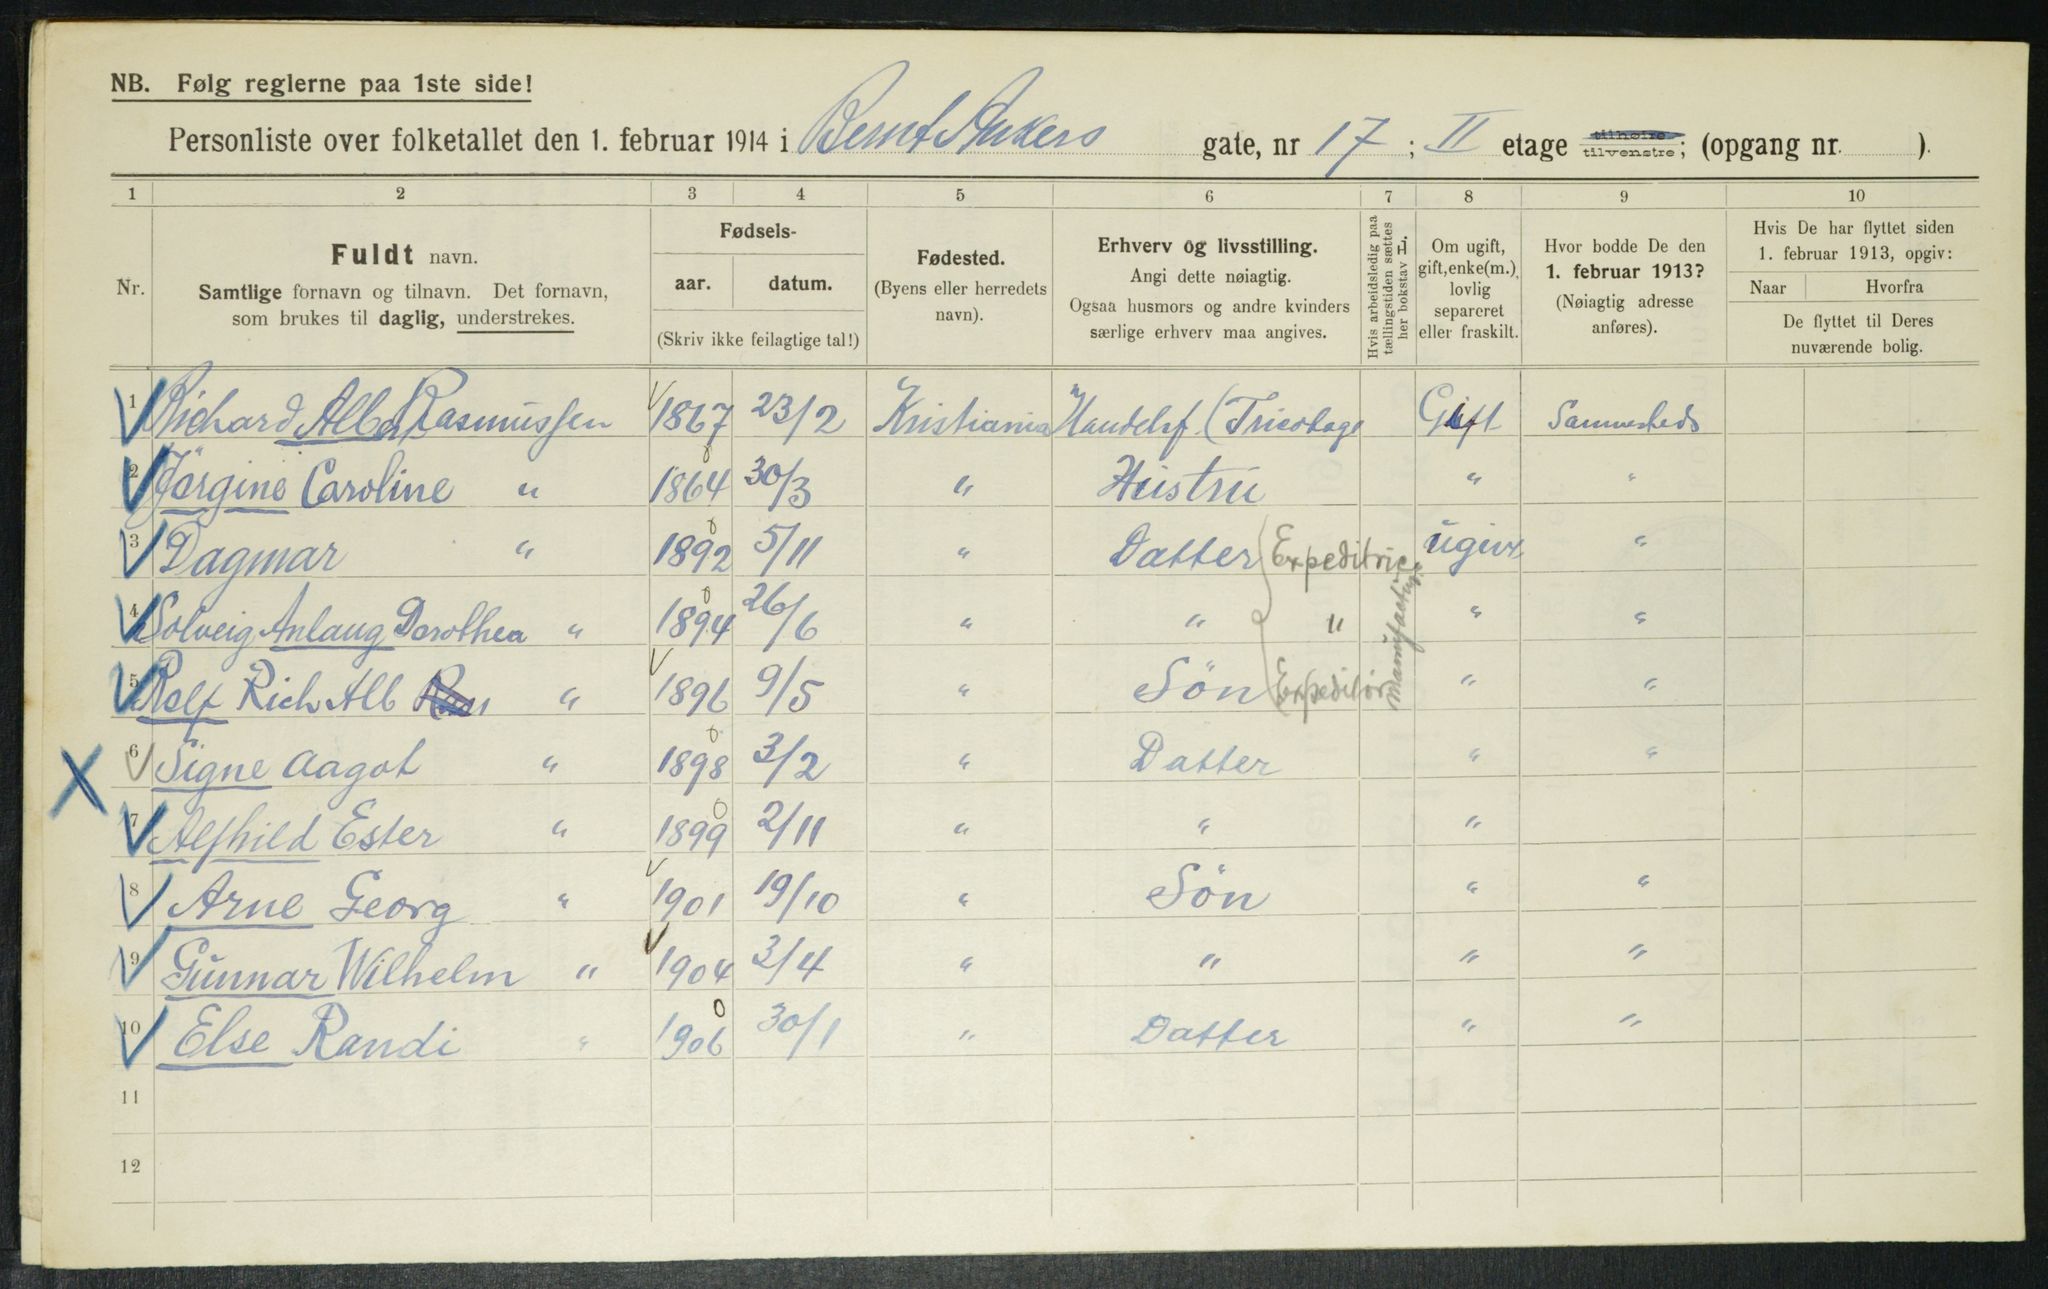 NB. Følg reglerne paa 1ste side!
Personliste over folketallet den 1. februar 1914 i Bernt Ankers gate, nr 17; II etage tilhøire tilvenstre; (opgang nr. ).
1 2 3 4 5 6 7 8 9 10
Nr.
Fuldt navn.
Samtlige fornavn og tilnavn. Det fornavn,
som brukes til daglig, understrekes.
Fødsels-
aar. datum.
(Skriv ikke feilagtige tal!)
Fødested.
(Byens eller herredets
navn).
Erhverv og livsstilling.
Angi dette nøiagtig.
Ogsaa husmors og andre kvinders
særlige erhverv maa angives.
Hvis arbeidsledig paa
tællingstiden sættes
her bokstav L.
Om ugift,
gift, enke(m.),
lovlig
separeret
eller fraskilt.
Hvor bodde De den
1. februar 1913?
(Nøiagtig adresse
anføres).
Hvis De har flyttet siden
1. februar 1913, opgiv:
Naar Hvorfra
De flyttet til Deres
nuværende bolig.
1 Richard Alb. Rasmussen 1867 23/2 Kristiania Handelsf. (Tricotage Gift Sammesteds
2 Jörgine Caroline " 1864 30/3 " Hustru " "
3 Dagmar " 1892 5/11 " Datter Expeditrice ugivt "
4 Solveig Anlaug Dorothea " 1894 26/6 " " " " "
manufactur
5 Rolf Rich Alb Ras " 1896 9/5 " Sön Expeditör " "
6 Signe Aagot " 1898 3/2 " Datter " "
7 Alfhild Ester " 1899 2/11 " " "
8 Arne Georg " 1901 19/10 " Sön " "
9 Gunnar Wilhelm " 1904 3/4 " " " "
10 Else Randi " 1906 30/1 " Datter " "
11
12